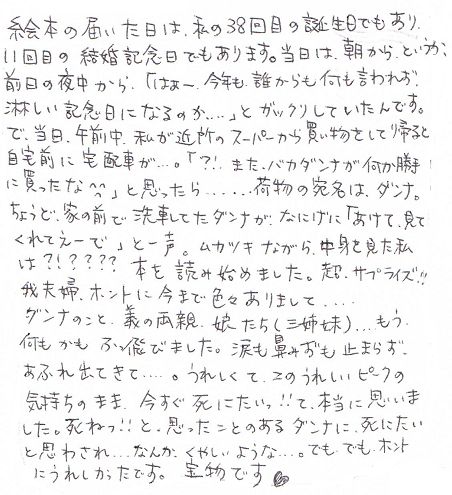 絵本の届いた日は、私の38回目の誕生日でもあり、
11回目の結婚記念日でもあります。当日は、朝から、というか、
前日の夜中から、「はぁ～、今年も、誰からも何も言われず、
淋しい記念日になるのか....」とガックリしていたんです。
で、当日、午前中、私が近所のスーパーから買い物をして帰ると
自宅前に宅配車が...。「?!、また、バカダンナが何か勝手
に買ったな^^」と思ったら......荷物の宛名は、ダンナ。
ちょうど、家の前で洗車してたダンナが、なにげに「あけて、見て
くれてえーで」と一声。ムカツキながら、中身を見た私
は?!?????本を読み始めました。超、サプライズ!!
我夫婦、ホントに今まで色々ありまして.....
ダンナのこと、義の両親、娘たち(三姉妹)...もう、
何もかもふっ飛びました。涙も鼻みずも止まらず、
あふれ出てきて.....。うれしくて、このうれしいピークの
気持ちのまま、今すぐ死にたいっ!!て、本当に思いま
した。死ねっ!!と、思ったことのあるダンナに、死にたい
と思わされ...なんか、くやしいような...。でも、でも、ホント
にうれしかったです。宝物です